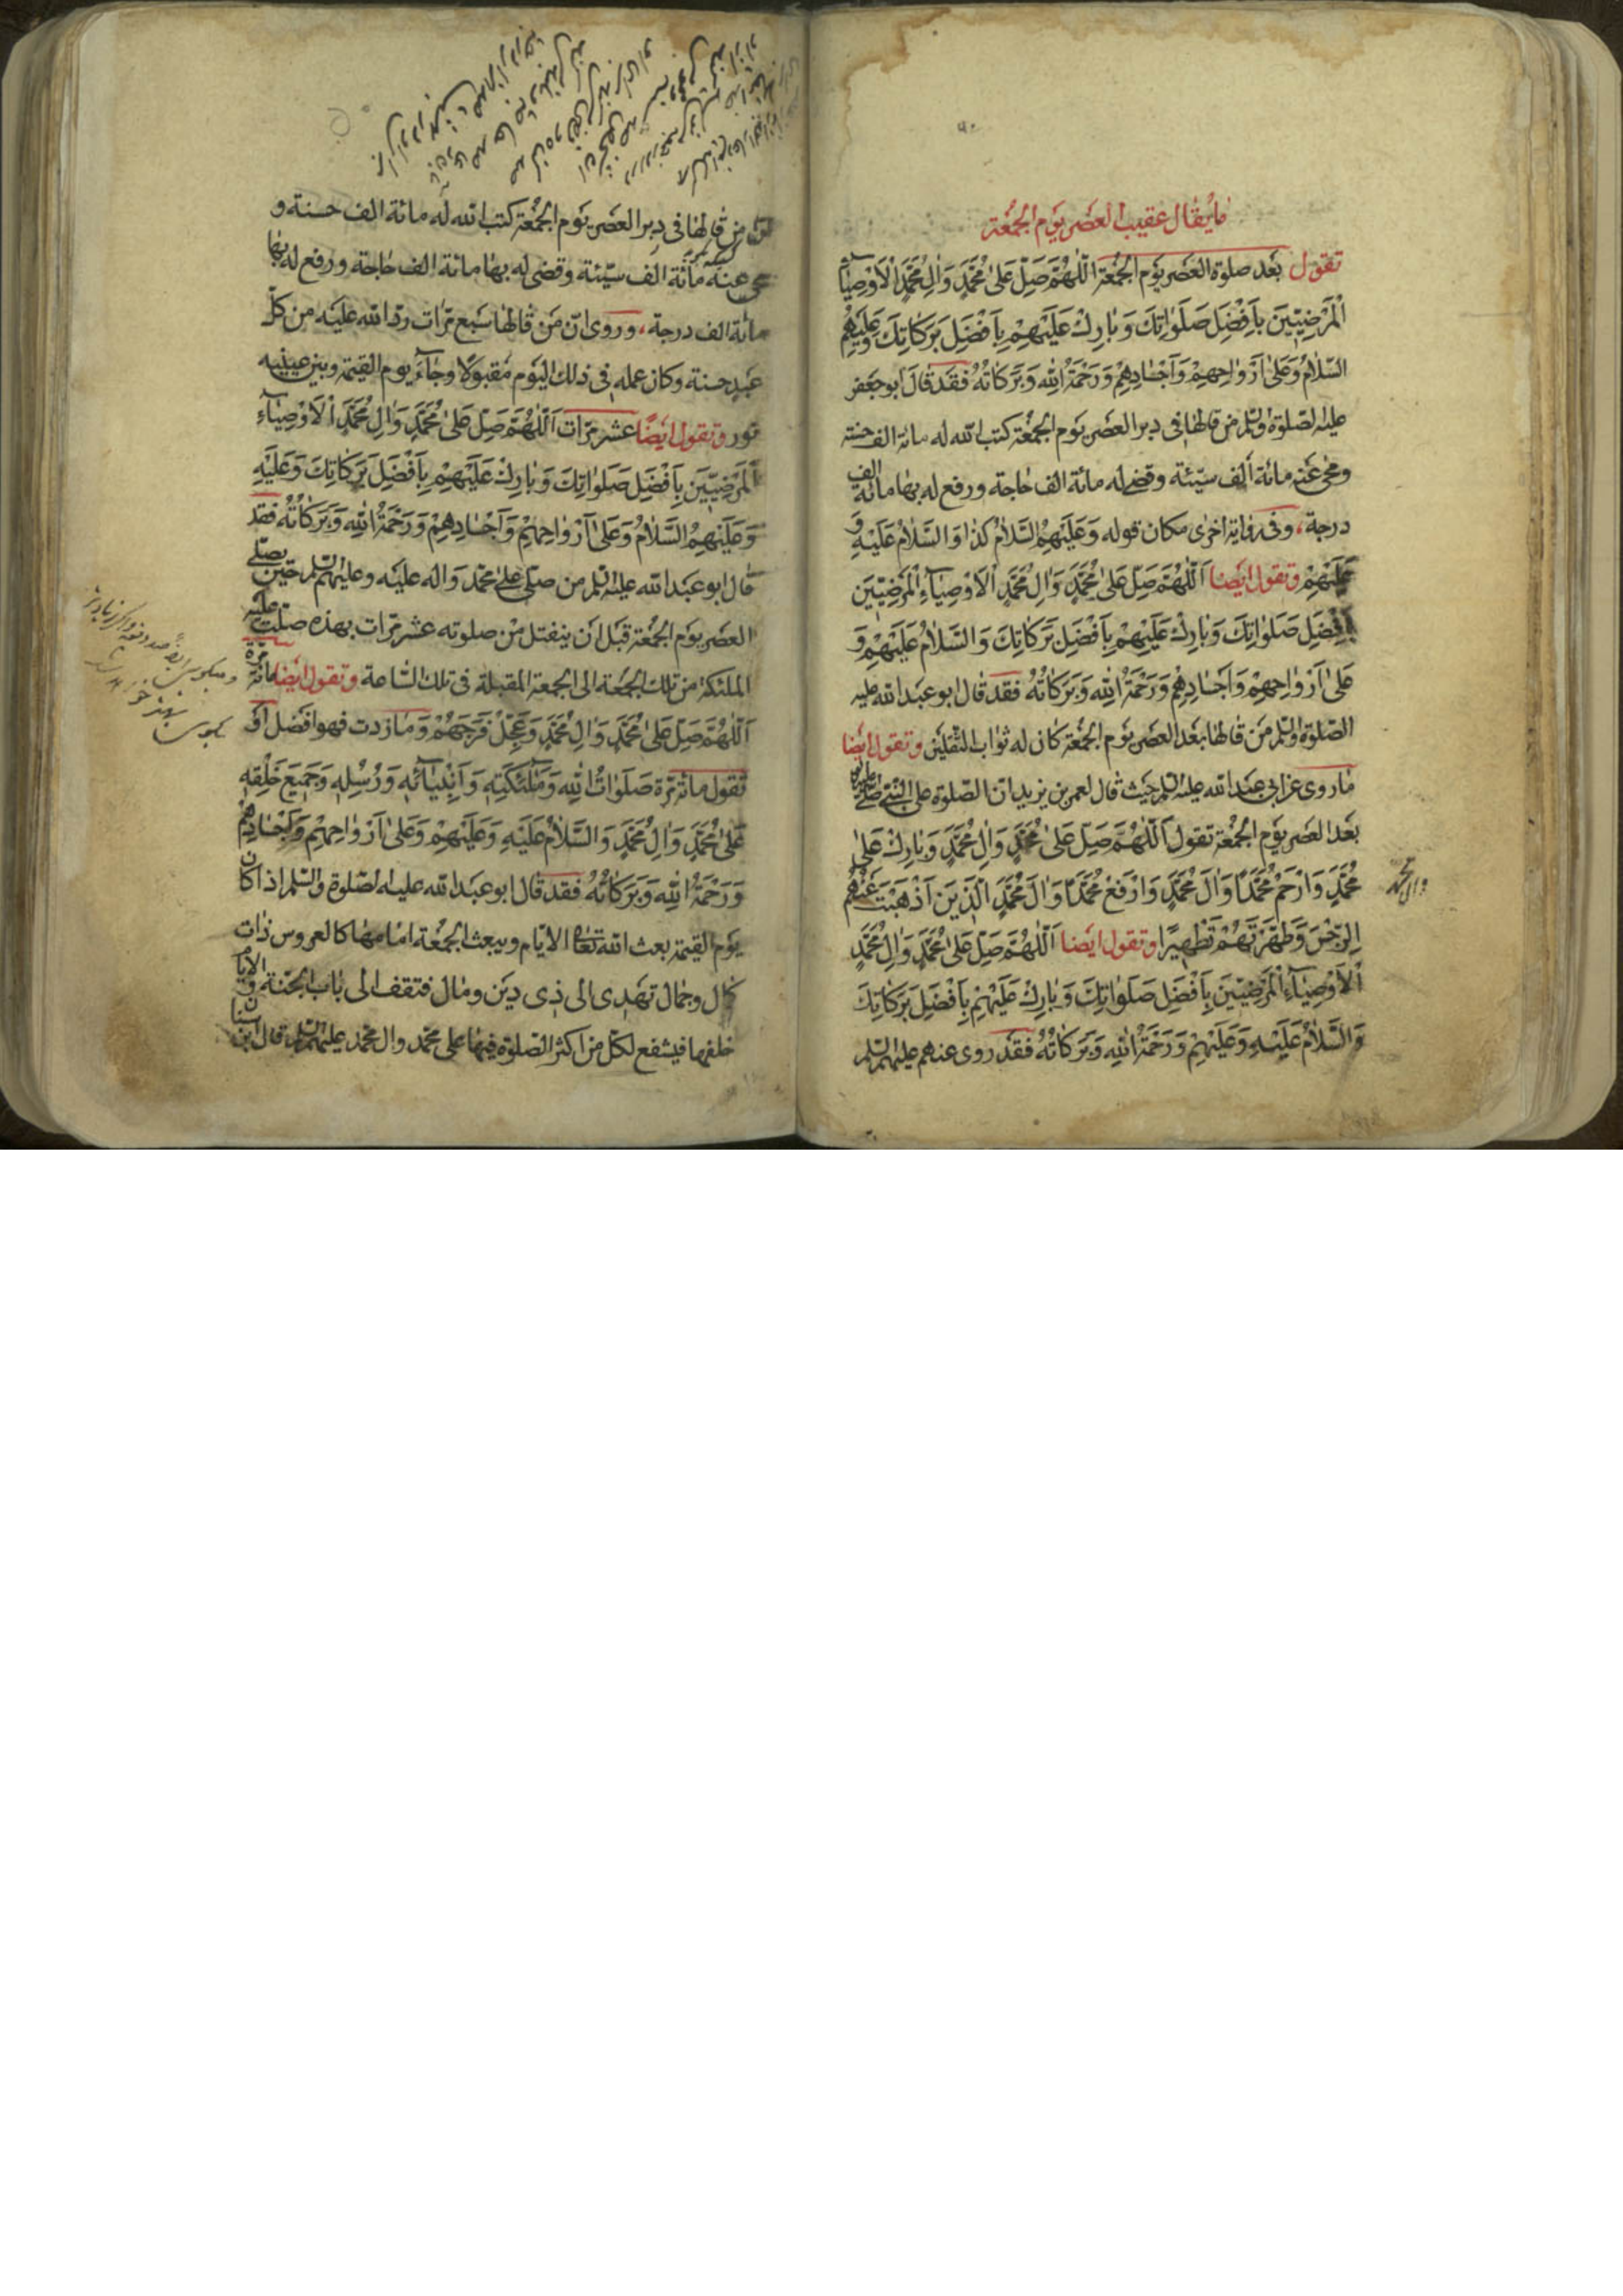 ما يقال عقيب العصر يوم الجمعة
تقول بعد صلوة العصر يوم الجمعة اللّٰهُمَّ صَلِّ عَلىٰ مُحَمَّدٍ وَاٰلِ مُحَمَّدٍ الْاَوْصِيٰآءِ
الْمَرْضِيّٖينَ بِاَفْضَلِ صَلَوٰاتِكَ وَبٰارِكْ عَلَيْهِمْ بِاَفْضَلِ بَرَكٰاتِكَ وَعَلَيْهِمُ
السَّلٰامُ وَعَلىٰ اَرْوٰاحِهِمْ وَاَجْسٰادِهِمْ وَرَحْمَةُ اللّٰهِ وَبَرَكٰاتُهُ فقد قال ابو جعفر
عليه الصلوة والسلم من قالها في دبر العصر يوم الجمعة كتب الله له مائة الف حسنة
ومحى عنه مائة الف سيّئة وقضى له مائة الف حاجة ورفع له بها مائة الف
درجة، وفي رواية اخرى مكان قوله وَعَلَيْهِمُ السَّلٰامُ كذا وَالسَّلٰامُ عَلَيْهِ وَ
عَلَيْهِمْ وتقول ايضا اَللّٰهُمَّ صَلِّ عَلىٰ مُحَمَّدٍ وَاٰلِ مُحَمَّدٍ الْاَوْصِيٰآءِ الْمَرْضِيّٖينَ
بِاَفْضَلِ صَلَوٰاتِكَ وَبٰارِكْ عَلَيْهِمْ بِاَفْضَلِ بَرَكٰاتِكَ وَالسَّلٰامُ عَلَيْهِمْ وَ
عَلىٰ اَرْوٰاحِهِمْ وَاَجْسٰادِهِمْ وَرَحْمَةُ اللّٰهِ وَبَرَكٰاتُهُ فقد قال ابو عبد الله عليه
الصلوة والسلم من قالها بعد العصر يوم الجمعة كان له ثواب الثقلين وتقول ايضا
ما روى عن ابي عبد الله عليه السلم حيث قال لعمر بن يزيد ان الصلوة على النبي صلى الله عليه واله
بعد العصر يوم الجمعة تقول اَللّٰهُمَّ صَلِّ عَلىٰ مُحَمَّدٍ وَاٰلِ مُحَمَّدٍ وَبٰارِكْ عَلىٰ
مُحَمَّدٍ وَارْحَمْ مُحَمَّدًا وَاٰلَ مُحَمَّدٍ وَارْفَعْ مُحَمَّدًا وَاٰلَ مُحَمَّدٍ الَّذٖينَ اَذْهَبْتَ عَنْهُمُ
وال محمد
الرِّجْسَ وَطَهَّرْتَهُمْ تَطْهٖيرًا وتقول ايضا اَللّٰهُمَّ صَلِّ عَلىٰ مُحَمَّدٍ وَاٰلِ مُحَمَّدٍ
الْاَوْصِيٰآءِ الْمَرْضِيّٖينَ بِاَفْضَلِ صَلَوٰاتِكَ وَبٰارِكْ عَلَيْهِمْ بِاَفْضَلِ بَرَكٰاتِكَ
وَالسَّلٰامُ عَلَيْهِ وَعَلَيْهِمْ وَرَحْمَةُ اللّٰهِ وَبَرَكٰاتُهُ فقد روى عنهم عليهم السلم
انّ من قالها في دبر العصر يوم الجمعة كتب الله له مائة الف حسنة و
محى عنه مائة الف سيّئة وقضى له بها مائة الف حاجة ورفع له بها
مائة الف درجة، وروى ان من قالها سبع مرّات ردّ الله عليه من كلّ
عبد حسنة وكان عمله في ذلك اليوم مقبولا وجآء يوم القيمة وبين عينيه
نور وتقول ايضا عشر مرّات اَللّٰهُمَّ صَلِّ عَلىٰ مُحَمَّدٍ وَاٰلِ مُحَمَّدٍ الْاَوْصِيٰآءِ
الْمَرْضِيّٖينَ بِاَفْضَلِ صَلَوٰاتِكَ وَبٰارِكْ عَلَيْهِمْ بِاَفْضَلِ بَرَكٰاتِكَ وَعَلَيْهِ
وَعَلَيْهِمُ السَّلٰامُ وَعَلىٰ اَرْوٰاحِهِمْ وَاَجْسٰادِهِمْ وَرَحْمَةُ اللّٰهِ وَبَرَكٰاتُهُ فقد
قال ابو عبد الله عليه السلم من صلّى على محمد واله عليه وعليهم السلم حين يصلّى
العصر يوم الجمعة قبل ان ينفتل من صلوته عشر مرّات بهذه صلّت عليه
الملئكة من تلك الجمعة الى الجمعة المقبلة في تلك الساعة وتقول ايضا مائة مرة
اَللّٰهُمَّ صَلِّ عَلىٰ مُحَمَّدٍ وَاٰلِ مُحَمَّدٍ وَعَجِّلْ فَرَجَهُمْ وما زدت فهو افضل او
تقول مائة مرّة صَلَوٰاتُ اللّٰهِ وَمَلٰئِكَتِهٖ وَاَنْبِيٰآئِهٖ وَرُسُلِهٖ وَجَمٖيعِ خَلْقِهٖ
عَلىٰ مُحَمَّدٍ وَاٰلِ مُحَمَّدٍ وَالسَّلٰامُ عَلَيْهِ وَعَلَيْهِمْ وَعَلىٰ اَرْوٰاحِهِمْ وَاَجْسٰادِهِمْ
وَرَحْمَةُ اللّٰهِ وَبَرَكٰاتُهُ فقد قال ابو عبد الله عليه الصلوة والسلم اذا كان
يوم القيمة بعث الله تعالى الايّام ويبعث الجمعة امامها كالعروس ذات
كمال وجمال تهدى الى ذى دين ومال فتقف الى باب الجنّة والايام
خلفها فيشفع لكلّ من اكثر الصلوة فيها على محمد وال محمد عليهم السلم قال ابن سنان